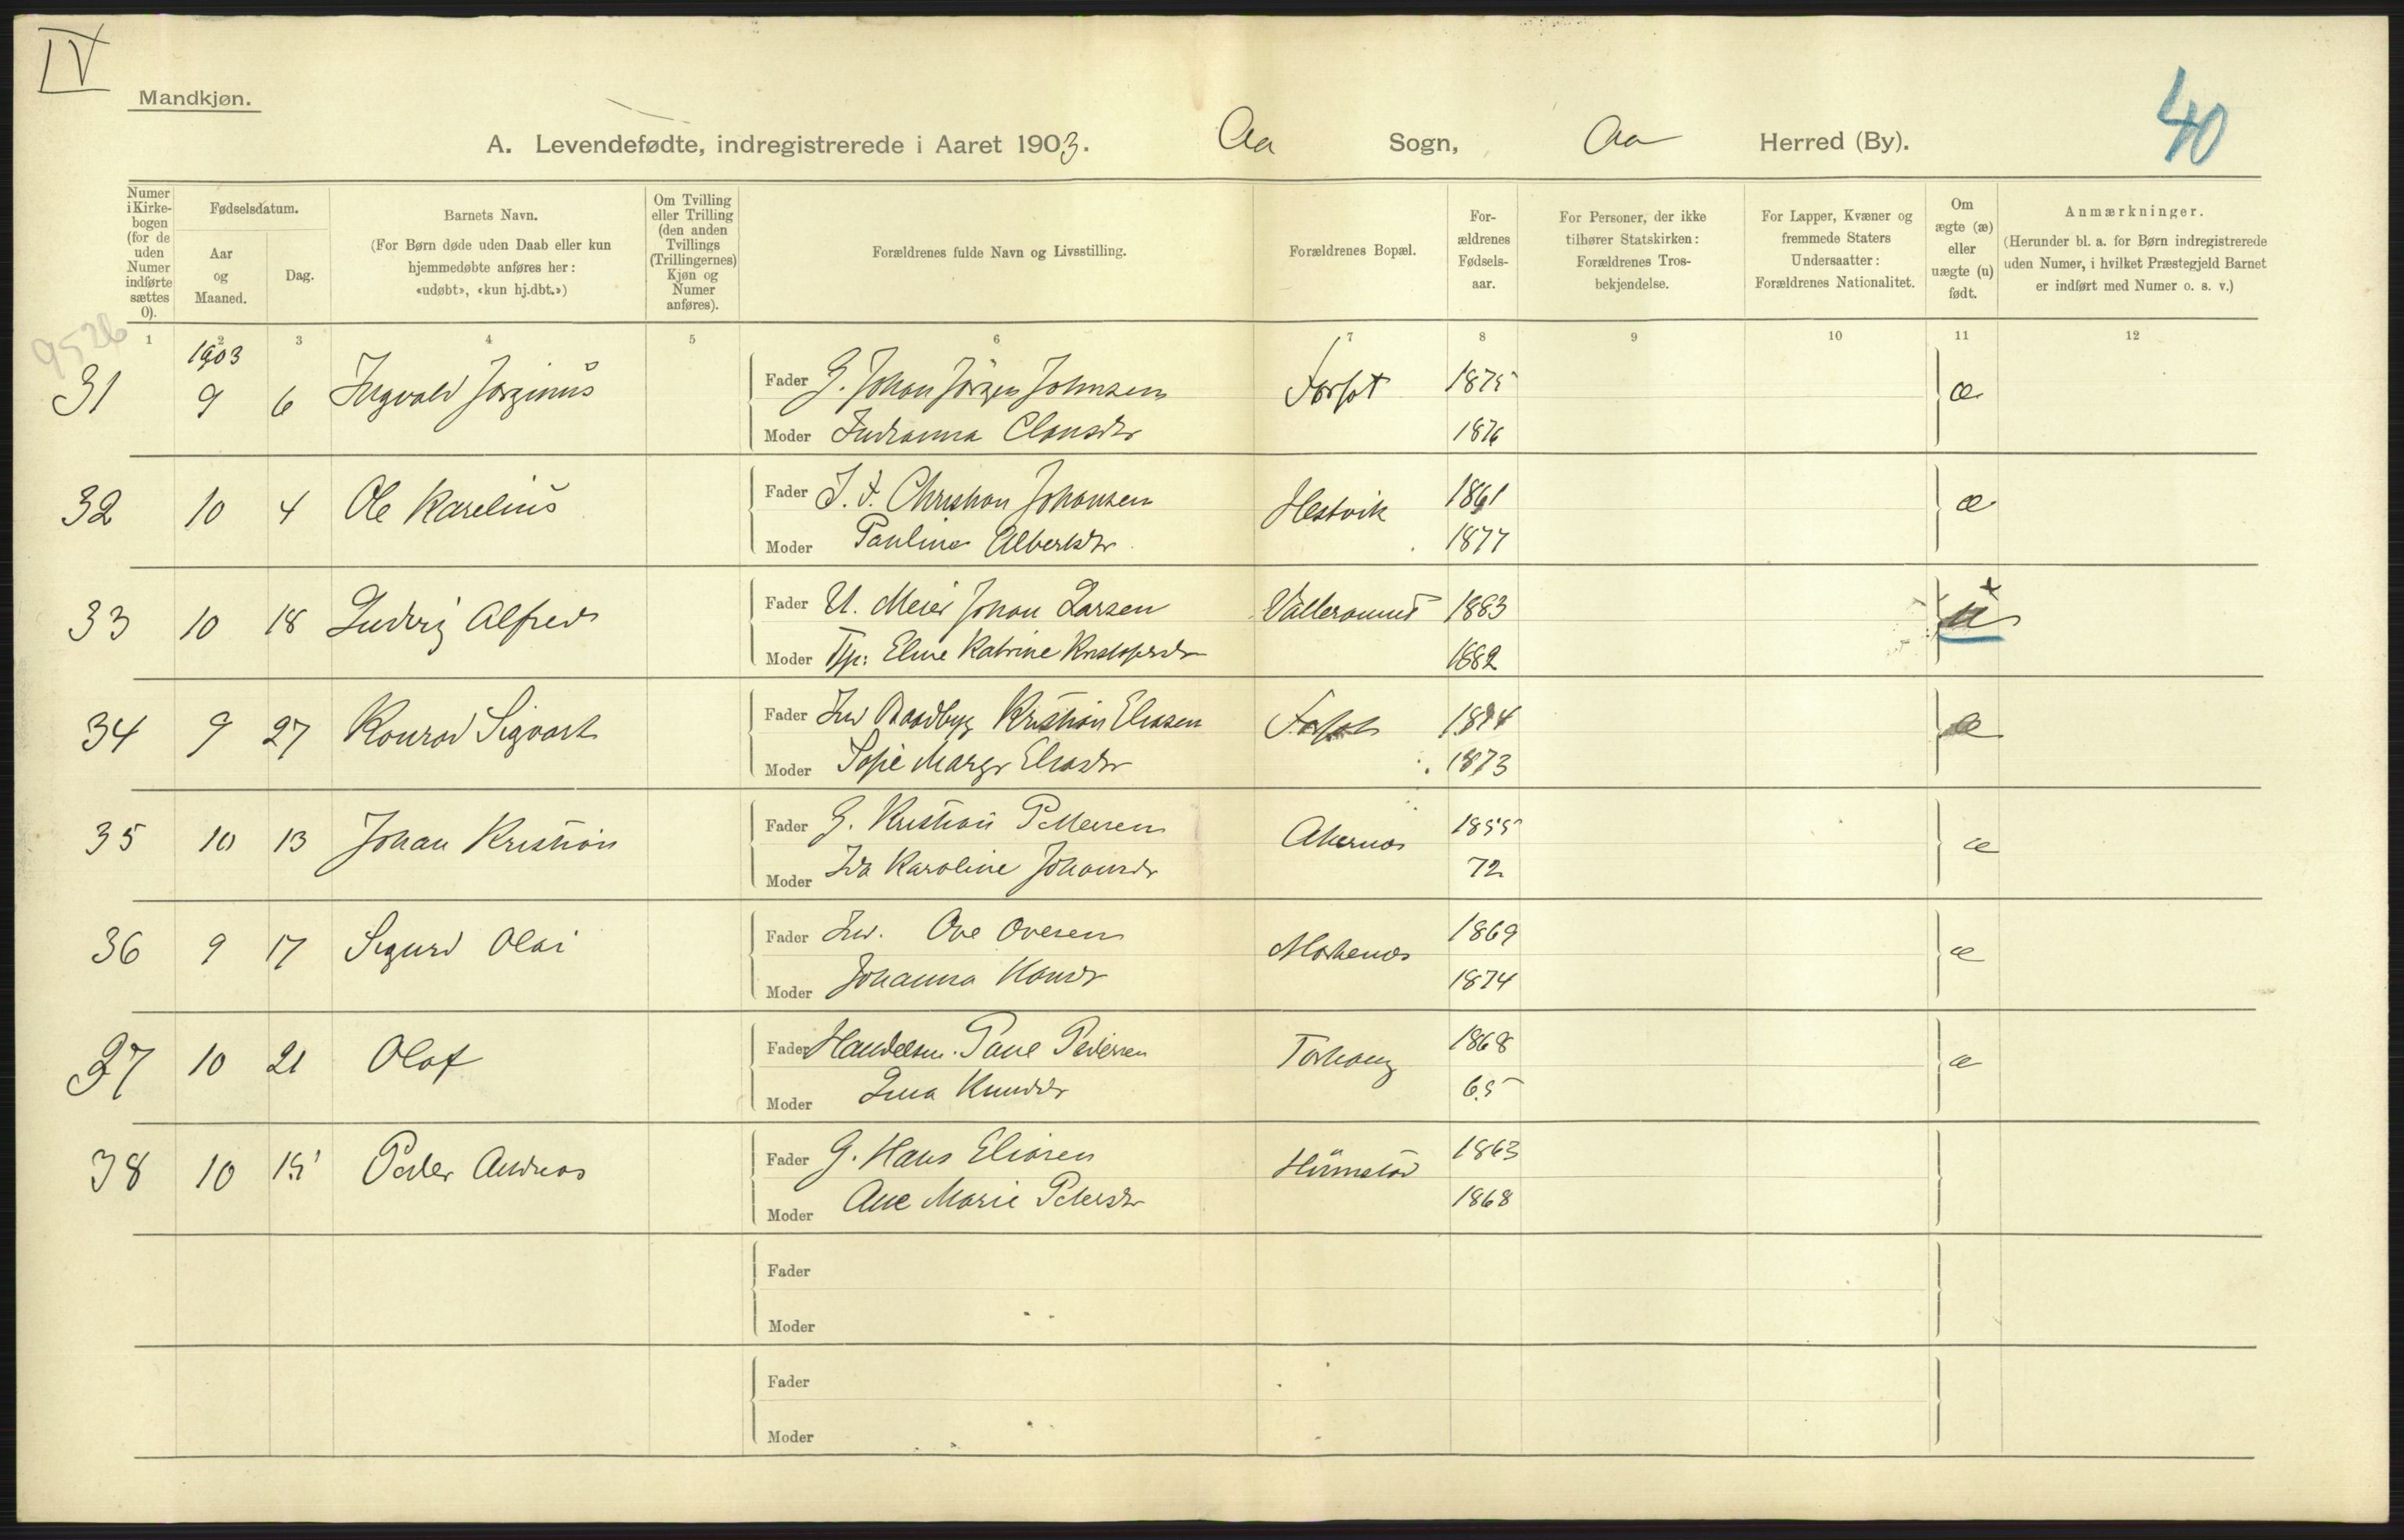 IV
Mandkjøn.
A. Levendefødte, indregistrerede i Aaret 1903. Aa Sogn, Aa Herred (By).
40
Numer i Kirkebogen (for de uden Numer indførte sættes 0).
Fødselsdatum.
Aar og Maaned.
Dag.
Barnets Navn.
(For Børn døde uden Daab eller kun
hjemmedøbte anføres her:
«udøbt», «kun hj.dbt.»)
Om Tvilling
eller Trilling
(den anden
Tvillings
(Trillingernes)
Kjøn og
Numer
anføres).
Forældrenes fulde Navn og Livsstilling.
Forældrenes Bopæl.
For-
ældrenes
Fødsels-
aar.
For Personer, der ikke
tilhører Statskirken:
Forældrenes Tros-
bekjendelse.
For Lapper, Kvæner og
fremmede Staters
Undersaatter:
Forældrenes Nationalitet.
Om
ægte (æ)
eller
uægte (u)
født.
Anmærkninger.
(Herunder bl. a. for Børn indregistrerede
uden Numer, i hvilket Præstegjeld Barnet
er indført med Numer o. s. v.)
1 2 3 4 5 6 7 8 9 10 11 12
9526
1903
31 9 6 Ingvald Jørginus Fader G. Johan Jörgen Johnsen 1875 æ
Moder Indianna Clausdr 1876
32 10 4 Ole Karelius Fader I. F. Christian Johansen Hestvik 1861 æ
Moder Pauline Albertsdr 1877
33 10 18 Ludvig Alfred Fader U. Meier Johan Larsen 1883 u
Moder Tjp: Eline Katrine 1882
34 9 27 Konrad Sigvart Fader Ind Baadbyg Kristian Eliasen 1874 æ
Moder Sofie Margr Eliasdr 1873
35 10 13 Johan Kristian Fader G. Kristian Pettersen Akernæs 1855 æ
Moder Ida Karoline Johansdr 72
36 9 17 Sigurd Olai Fader Ind. Ove Ovesen 1869 æ
Moder Johanna Hansdr 1874
37 10 21 Olaf Fader Handelsm. Pedersen 1868 æ
Moder Lina Knudsdr 65
38 10 15 Peder Andreas Fader G. Hans Eliasen 1863
Moder Ane Marie Petersdr 1868
Fader
Moder
Fader
Moder